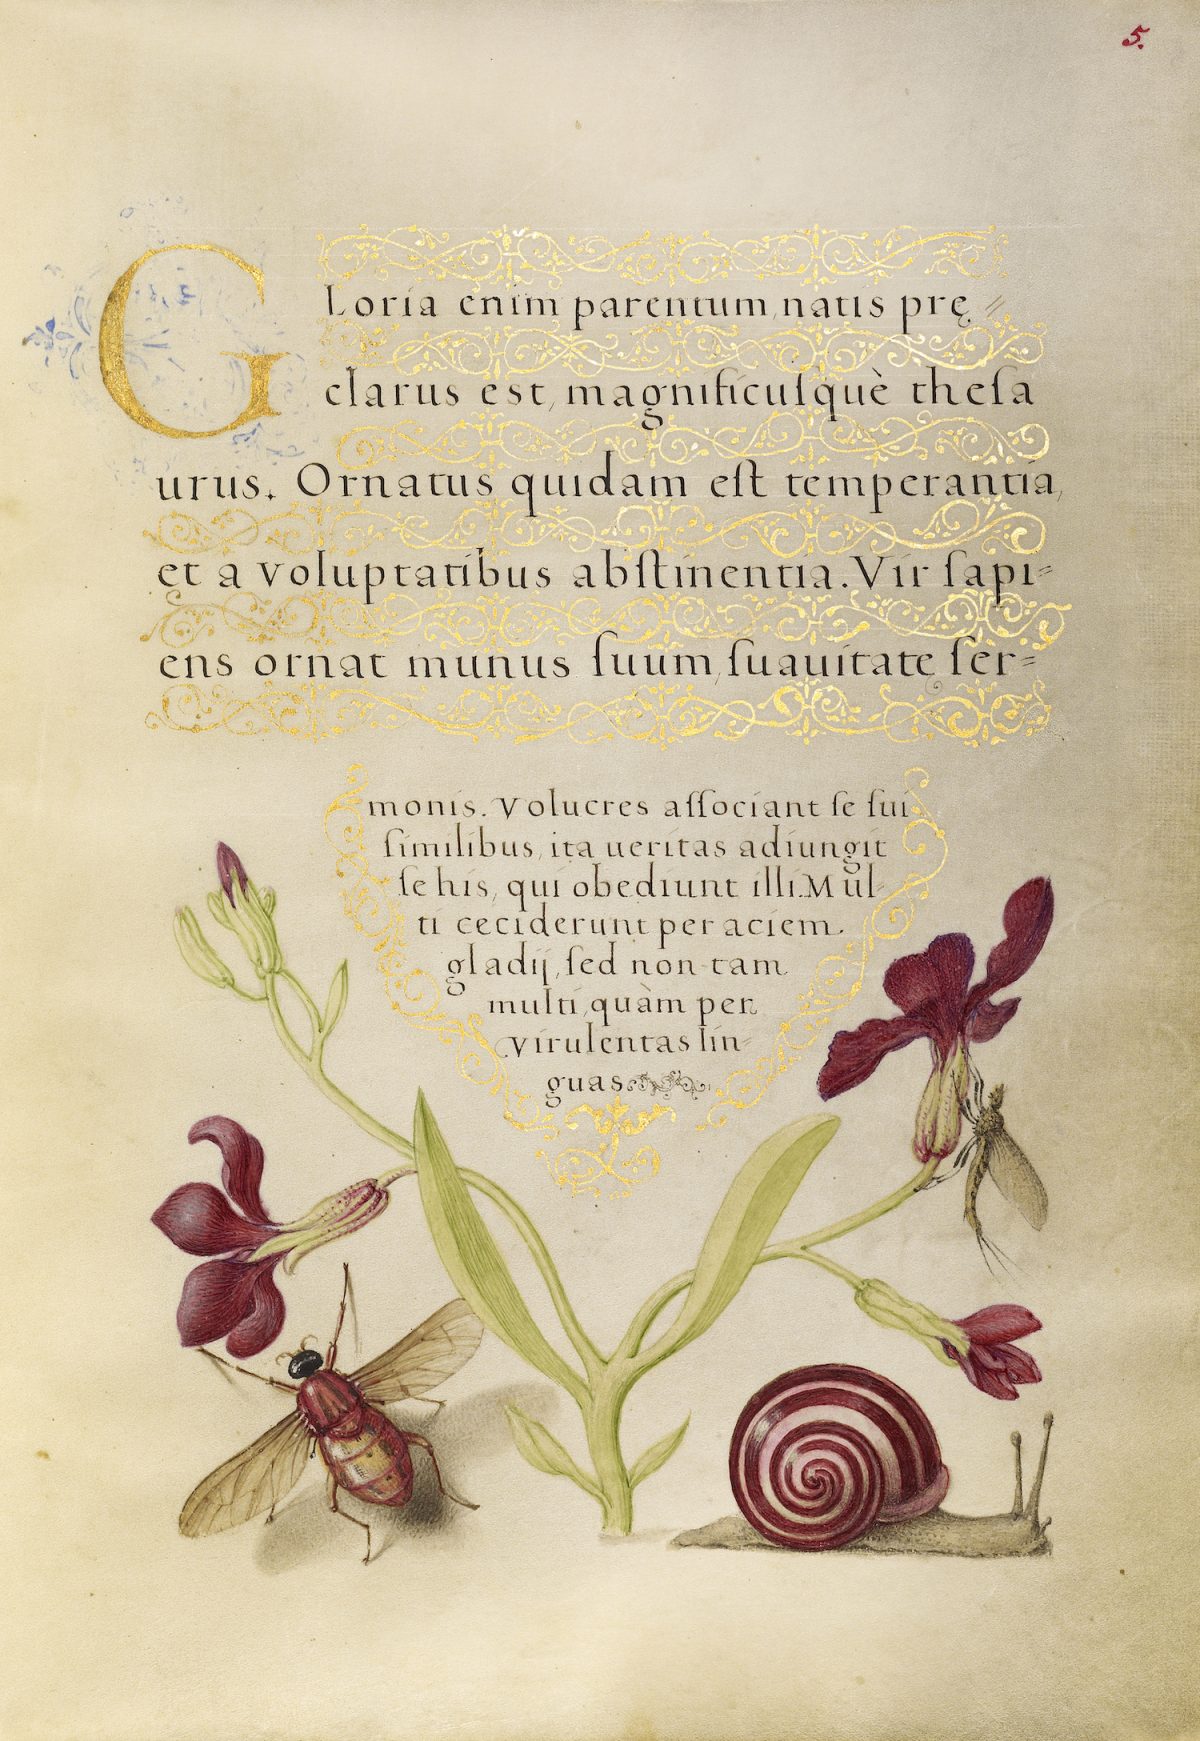 5.
GLoria enim parentum, natis prę=
clarus est, magnificuſquè theſa
urus. Ornatus quidam eſt temperantia,
et a voluptatibus abſtinentia. Vir ſapi=
ens ornat munus ſuum, ſuauitate ſer=
monis. Volucres aſſociant ſe ſui
ſimilibus, ita ueritas adiungit
ſe his, qui obediunt illi. Mul-
ti ceciderunt per aciem
gladij, ſed non tam
multi, quàm per
virulentas lin-
guas